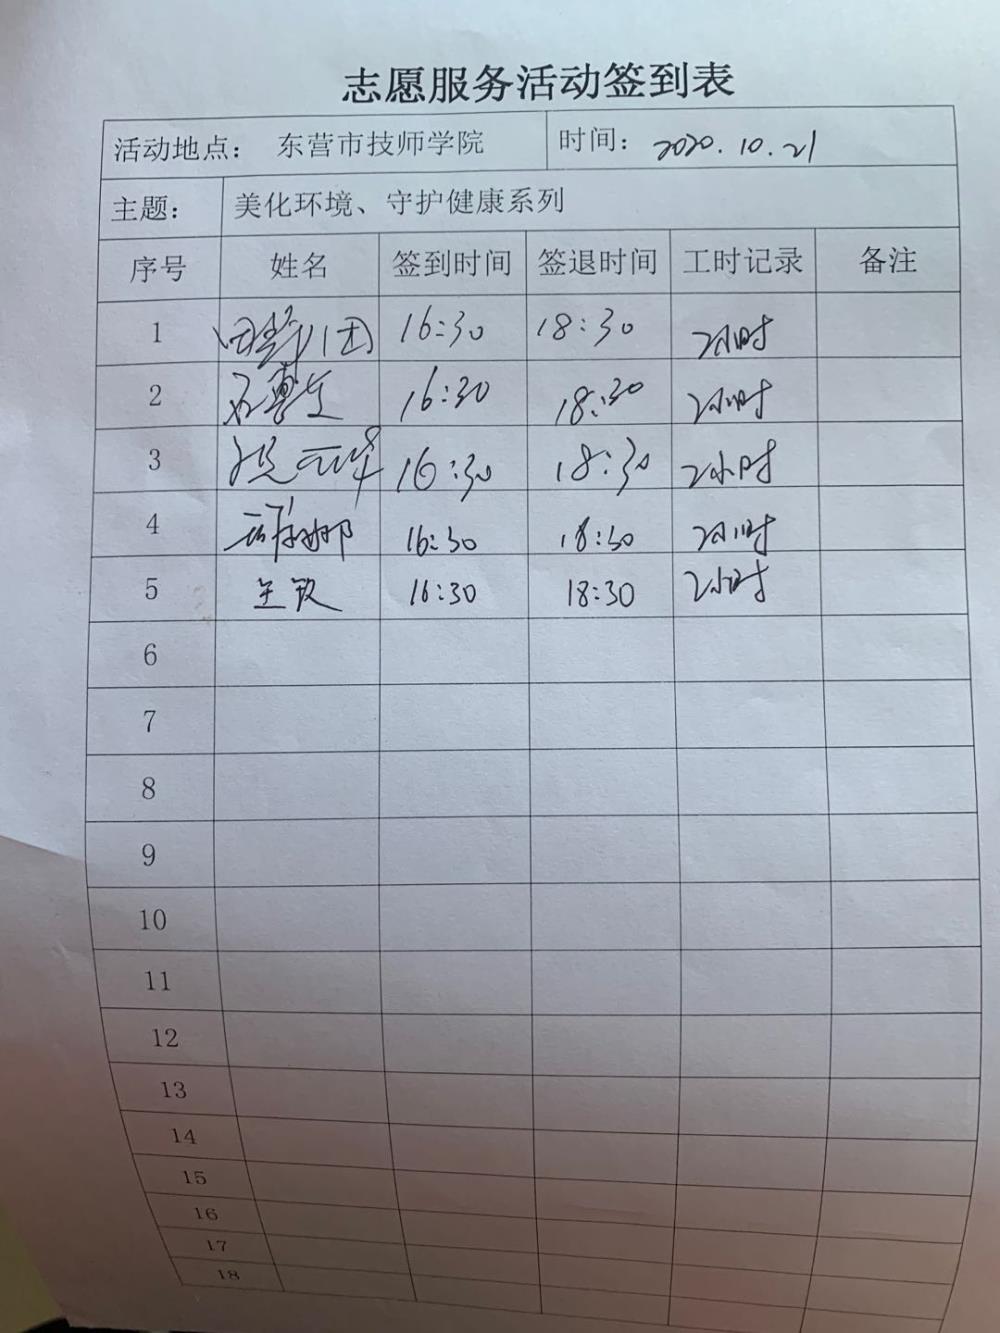 志愿服务活动签到表
活动地点： 东营市技师学院 时间：2020.10.21
主题： 美化环境、守护健康系列
序号 姓名 签到时间 签退时间 工时记录 备注
1 16:30 18:30 2小时
2 16:30 18:30 2小时
3 16:30 18:30 2小时
4 16:30 18:30 2小时
5 16:30 18:30 2小时
6
7
8
9
10
11
12
13
14
15
16
17
18